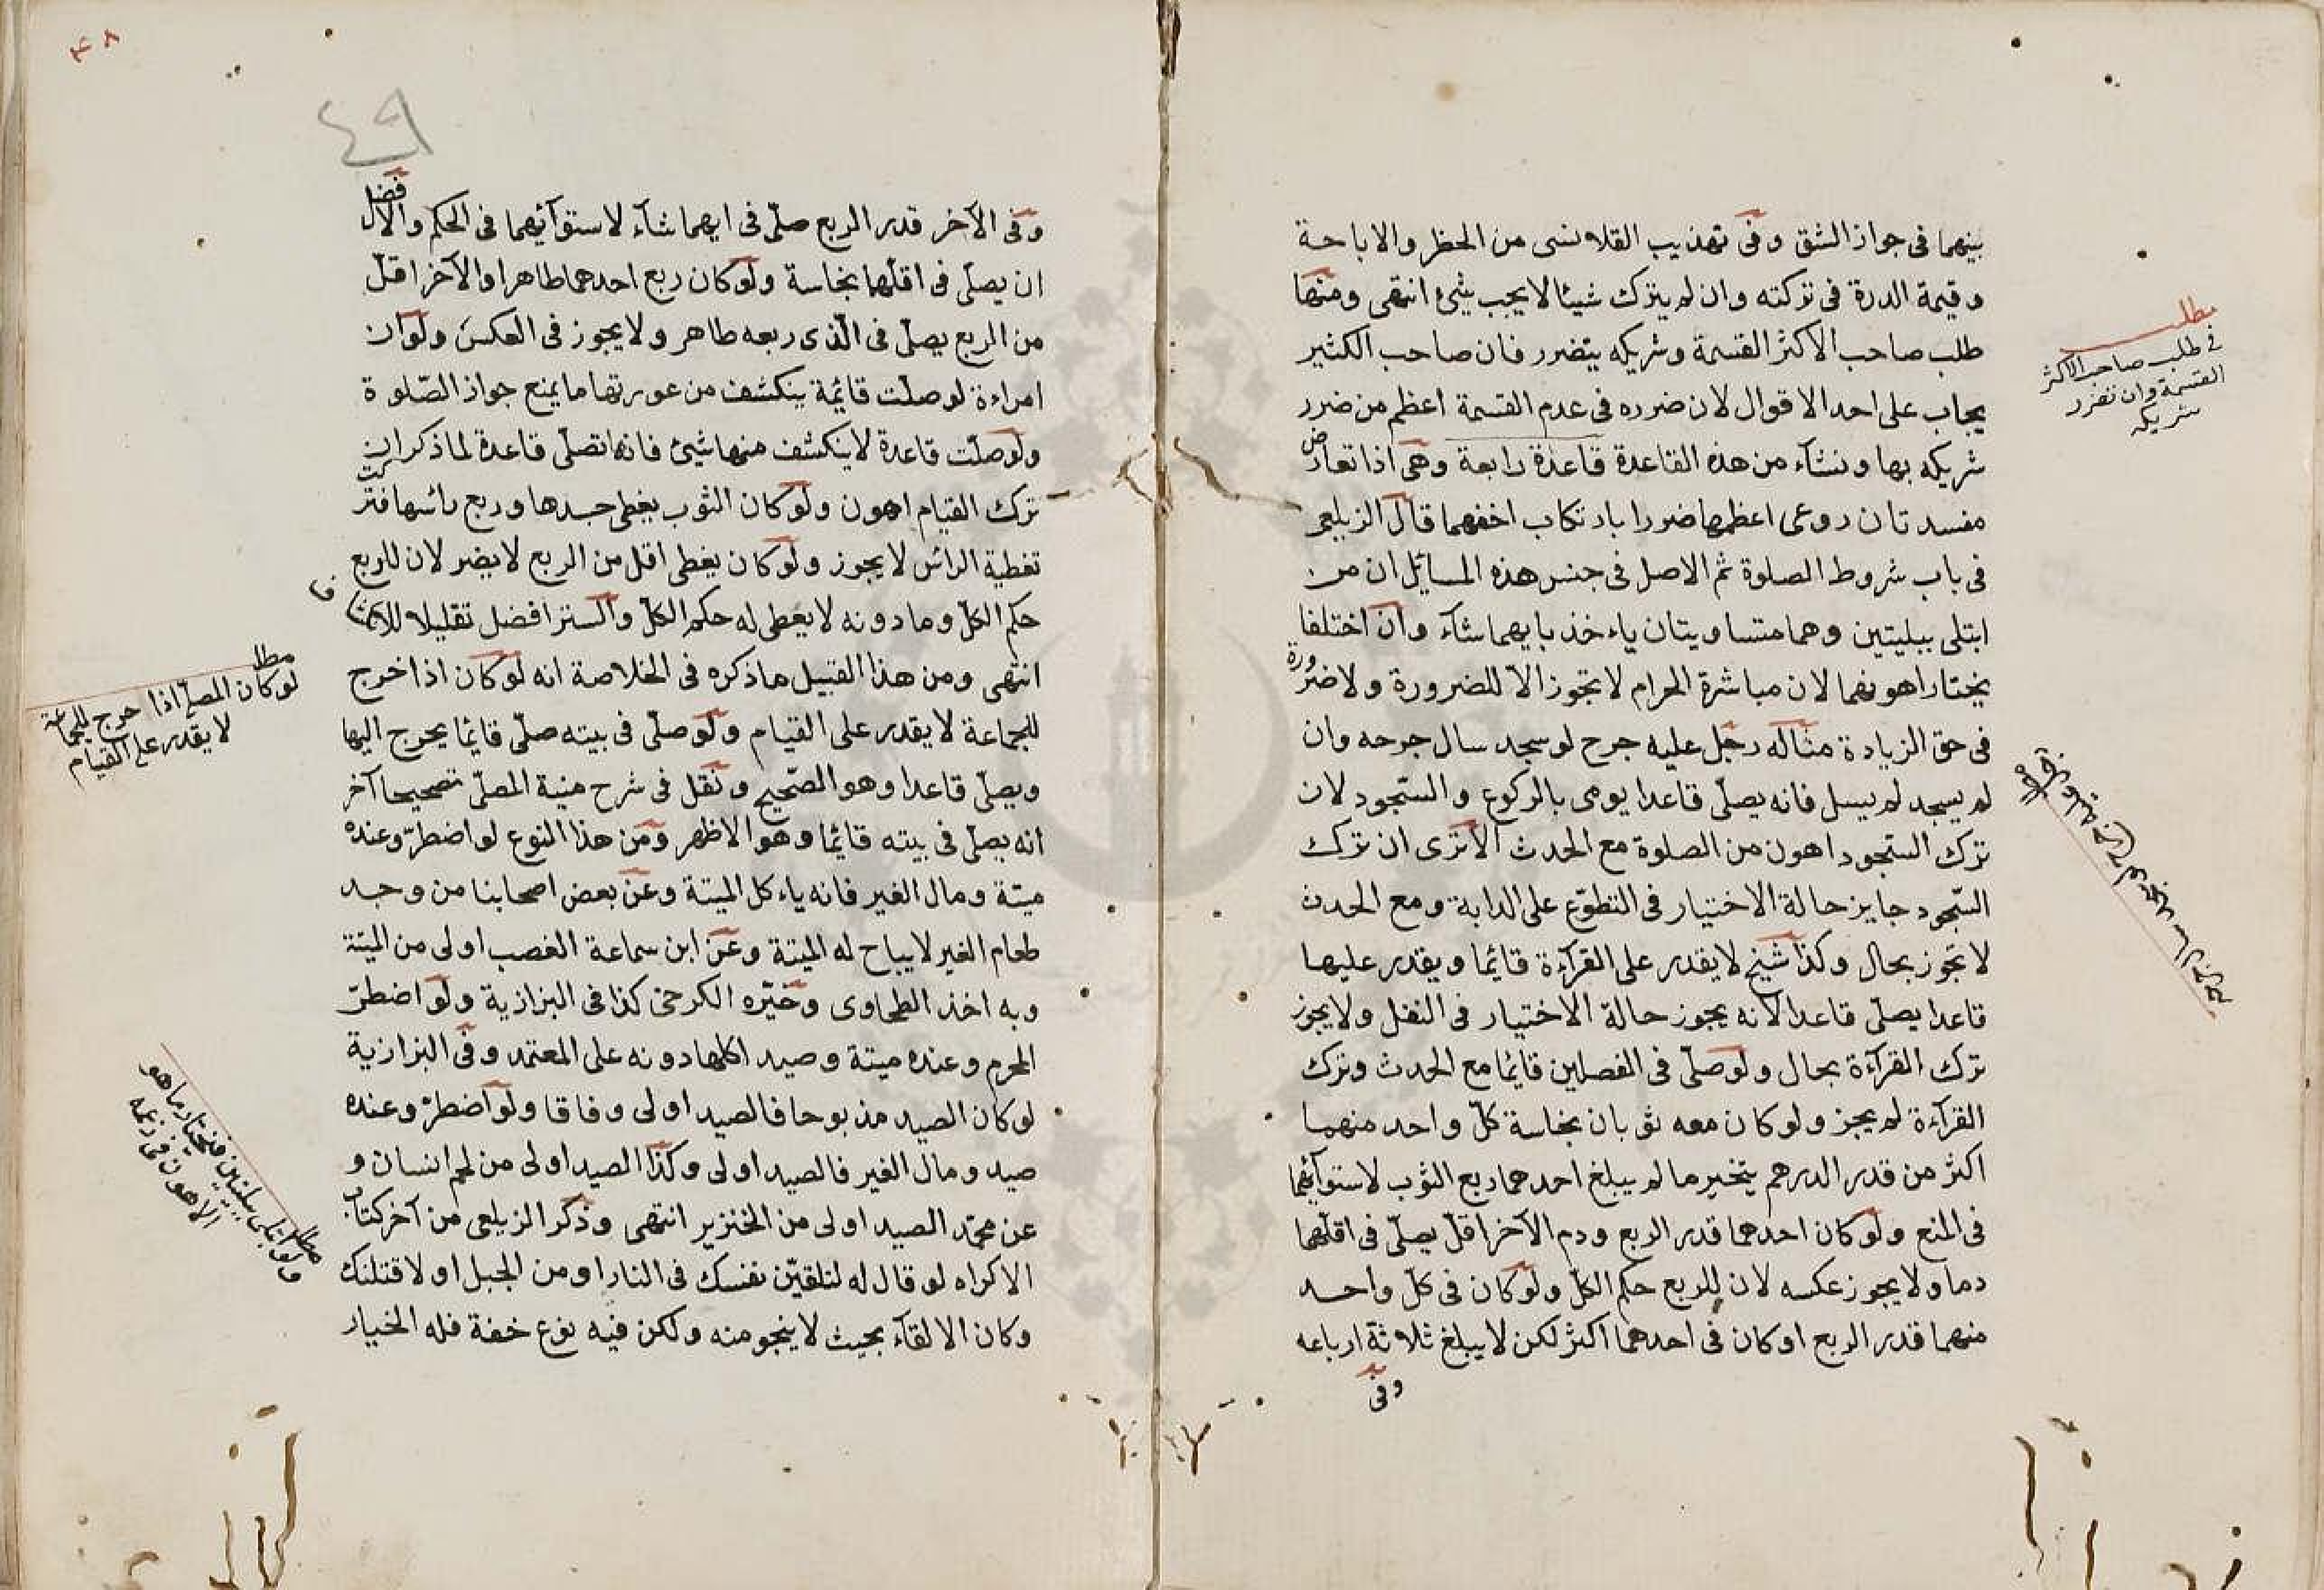 بينهما فى جواز الشق وفى تهذيب القلانسى من الحظر والاباحة
وقيمة الدرة فى تركته وان لم يترك شيئا لا يجب شئ انتهى ومنها
طلب صاحب الاكثر القسمة وشريكه يتضرر فان صاحب الكثير
يجاب على احد الاقوال لان ضرره فى عدم القسمة اعظم من ضرر
شريكه بها ونشاء من هذه القاعدة قاعدة رابعة وهى اذا تعارض
مفسدتان روعى اعظمهما ضررا بارتكاب اخفهما قال الزيلعى
فى باب شروط الصلوة ثم الاصل فى جنس هذه المسائل ان من
ابتلى ببليتين وهما متساويتان ياءخذ بايهما شآء وان اختلفا
يختار اهونهما لان مباشرة الحرام لا تجوز الا للضرورة ولا ضرورة
فى حق الزيادة مثاله رجل عليه جرح لو سجد سال جرحه وان
لم يسجد لم يسل فانه يصلى قاعدا يومى بالركوع والسّجود لان
ترك السّجود اهون من الصلوة مع الحدث الا ترى ان ترك
السّجود جايز حالة الاختيار فى التطوّع على الدابة ومع الحدث
لا تجوز بحال وكذا شيخ لا يقدر على القرآءة قائما ويقدر عليها
قاعدا يصلّى قاعدا لانه يجوز حالة الاختيار فى النفل ولا يجوز
ترك القرآءة بحال ولو صلّى فى الفصلين قائما مع الحدث وترك
القرآءة لم يجز ولو كان معه ثوبان نجاسة كلّ واحد منهما
اكثر من قدر الدرهم يتخير ما لم يبلغ احدهما ربع الثوب لاستوآئهما
فى المنع ولو كان احدهما قدر الربع ودم الآخر اقلّ يصلّى فى اقلّهما
دما ولا يجوز عكسه لان للربع حكم الكلّ ولو كان فى كلّ واحد
منهما قدر الربع او كان فى احدهما اكثر لكن لا يبلغ ثلاثة ارباعه
وفى
مطلب
فى طلب صاحب الاكثر
القسمة وان تضرر
شريكه
٤٨
٤٩
وفى الآخر قدر الربع صلّى فى ايهما شآء لاستوآئهما فى الحكم والافضل
ان يصلّى فى اقلّهما نجاسة ولو كان ربع احدهما طاهرا والآخر اقلّ
من الربع يصلّى فى الّذى ربعه طاهر ولا يجوز فى العكس ولو ان
امراءة لو صلّت قائمة ينكشف من عورتها ما يمنع جواز الصّلوة
ولو صلّت قاعدة لا ينكشف منها شئ فانها تصلّى قاعدة لما ذكر ان
ترك القيام اهون ولو كان الثوب يغطى جسدها وربع رائسها فتركت
تغطية الرائس لا يجوز ولو كان يغطى اقل من الربع لا يضر لان للربع
حكم الكلّ وما دونه لا يعطى له حكم الكلّ والستر افضل تقليلا للانكشاف
انتهى ومن هذا القبيل ما ذكره فى الخلاصة انه لو كان اذا خرج
للجماعة لا يقدر على القيام ولو صلّى فى بيته صلّى قائما يخرج اليها
ويصلّى قاعدا وهو الصّحيح ونقل فى شرح منية المصلّى تصحيحا آخر
انه يصلّى فى بيته قائما وهو الاظهر ومن هذا النوع لو اضطرّ وعنده
ميتة ومال الغير فانه ياءكل الميتة وعن بعض اصحابنا من وجد
طعام الغير لا يباح له الميتة وعن ابن سماعة الغصب اولى من الميتة
وبه اخذ الطحاوى وخيّره الكرخى كذا فى البزازية ولو اضطرّ
المحرم وعنده ميتة وصيد اكلها دونه على المعتمد وفى البزازية
لو كان الصيد مذبوحا فالصيد اولى وفاقا ولو اضطرّ وعنده
صيد ومال الغير فالصيد اولى وكذا الصيد اولى من لحم انسان و
عن محمّد الصيد اولى من الخنزير انتهى وذكر الزيلعى من آخر كتاب
الاكراه لو قال له لتلقينّ نفسك فى النار او من الجبل او لاقتلنك
وكان الالقآء بحيث لا ينجو منه ولكن فيه نوع خفة فله الخيار
مطلب
لو كان المصلى اذا خرج للجماعة
لا يقدر على القيام
مطلب
ولو ابتلى ببليتين فيختار ما هو
الاهون فى زعمه